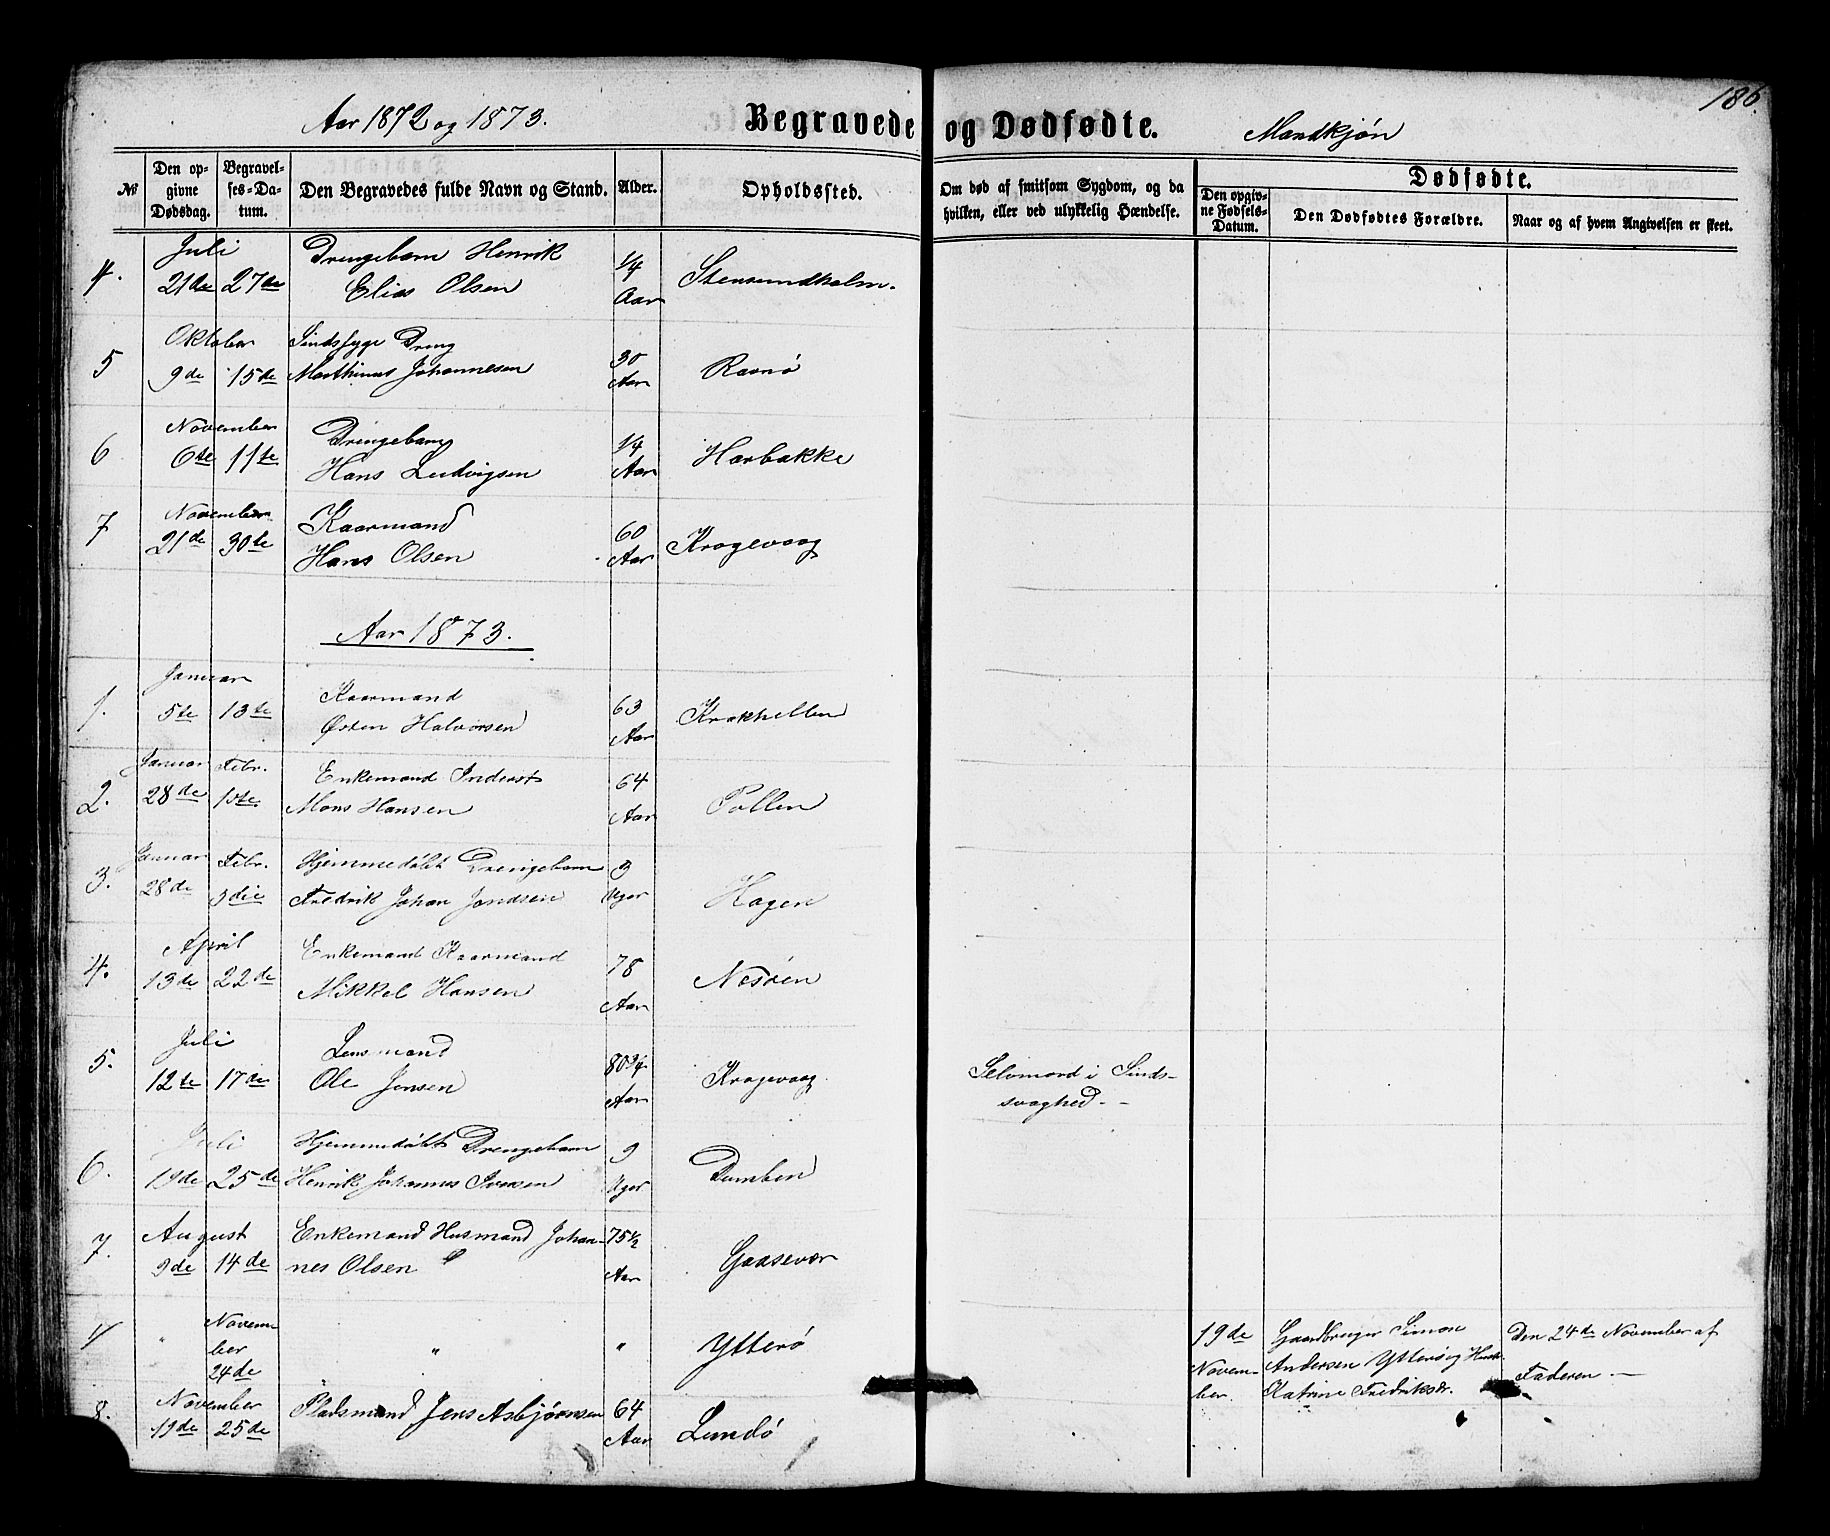 186.
Aar 1872 og 1873.
Begravede og Dødfødte.
Mandkjøn
№
Den opgivne Dødsdag.
Begravelses-Datum.
Den Begravedes fulde Navn og Stand.
Alder.
Opholdssted.
Om død af smitsom Sygdom, og da hvilken, eller ved ulykkelig Hændelse.
Dødfødte.
Den opgivne Fødsels-Datum.
Den Dødfødtes Forældre.
Naar og af hvem Angivelsen er skeet.
Juli Drengebarn Henrik 1/4
4. 21de 27de Elias Olsen Aar Stensundholm.
Oktober Sindssyge Dreng 30
5 9de 15de Marthinus Johannesen Aar Ravnø
November Drengebarn 1/4
6 6te 11te Hans Ludvigsen Aar Harbakke
November Kaarmand 60
7 21de 30te Hans Olsen Aar Kragevaag
Aar 1873.
Januar Kaarmand 63
1. 5te 13te Østen Halvorsen Aar Krakhellen
Januar Febr. Enkemand Inderst 64
2. 28de 1ste Mons Hansen Aar Pollen
Januar Febr. Hjemmedøbt Drengebarn 3
3. 28de 3die Fredrik Johan Jondsen Uger Hagen
April Enkemand Kaarmand 78
4. 13de 22de Mikkel Hansen Aar Nesøen
Juli Lensmand 80 3/4
5. 12te 17de Ole Jensen Aar Kragevaag Selvmord i Sinds-
svaghed. -
Juli Hjemmedøbt Drengebarn 9
6. 19de 25de Henrik Johannes Iversen Uger Dumben
August Enkemand Husmand Johan- 75 1/2
7. 9de 14de nes Olsen Aar Gaasevær
1/ " Novem- " " Ytterø 19de Gaardbruger Simon Den 24de November af
ber Novem- Andersen Ytterø og Hustr. Faderen. -
24de ber. Katrine Fredriksdr.
November Pladsmand Jens Asbjørnsen 64
8. 19de 25de Aar Lundø